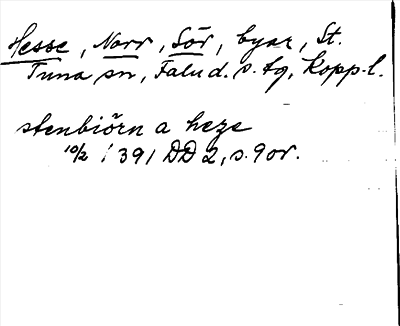 Hesse, Norr, Sör, byar, St.
Tuna sn, Falu d. s. tg, Kopp. l.
stenbiörn a heze
10/2 1391 DD 2, s. 90r.